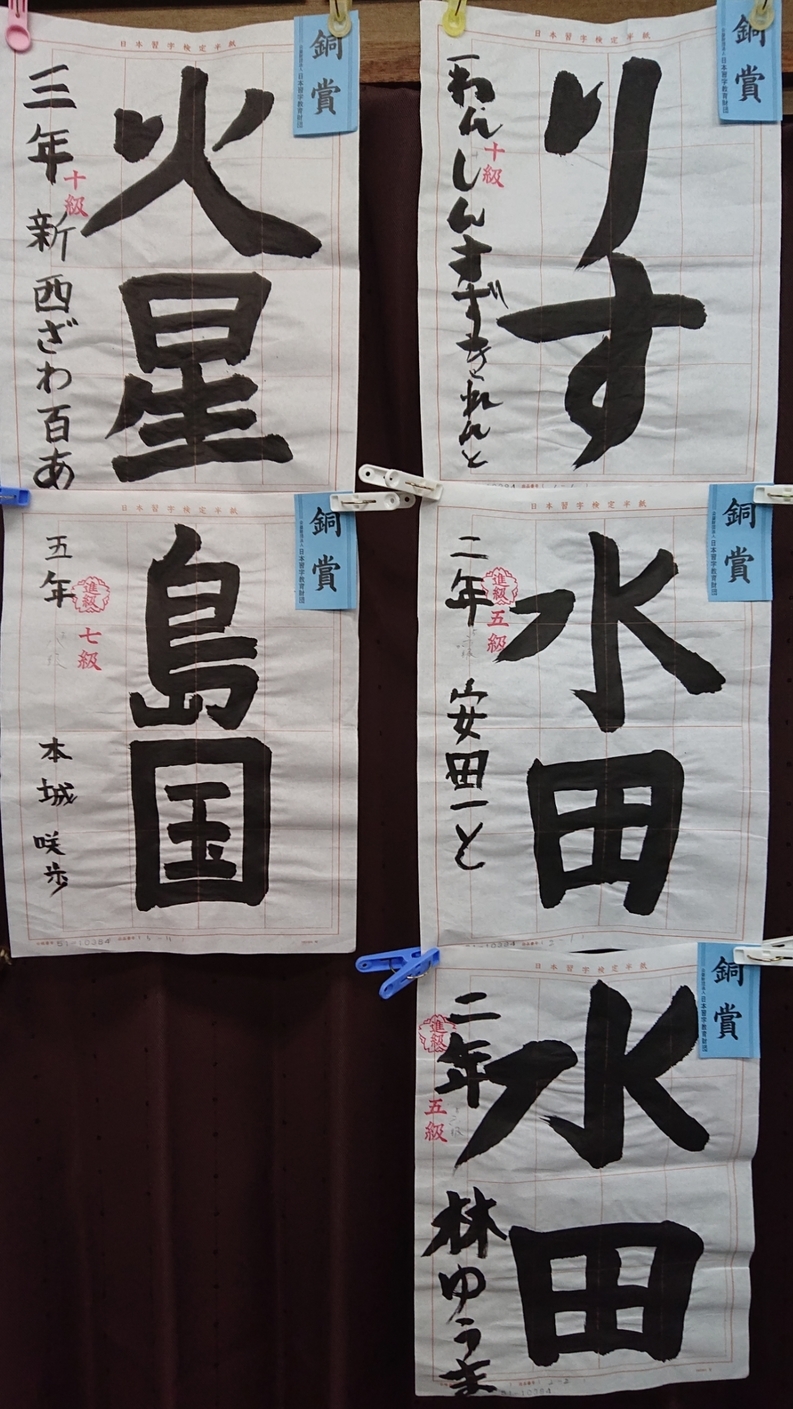 日本習字検定半紙
銅賞
公益財団法人 日本習字教育財団
りす
十級
一ねんしんすずきれんと
日本習字検定半紙
銅賞
火星
十級
三年 新西ざわ百あ
日本習字検定半紙
銅賞
公益財団法人 日本習字教育財団
水田
進級
五級
二年 安田一と
日本習字検定半紙
銅賞
公益財団法人 日本習字教育財団
島国
進級
七級
五年 本城 咲歩
51-10384
日本習字検定半紙
銅賞
公益財団法人 日本習字教育財団
水田
進級
五級
二年 林ゆうま